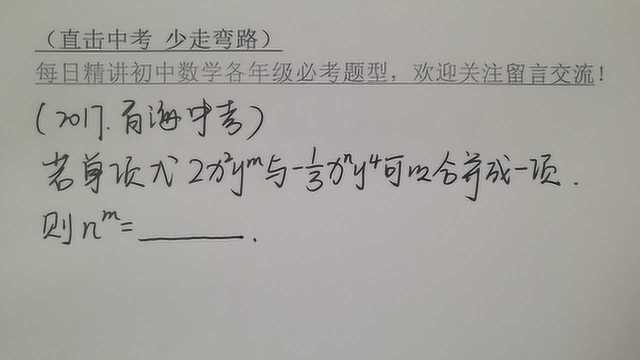 （直击中考 少走弯路）
每日精讲初中数学各年级必考题型，欢迎关注留言交流！
(2017.青海中考)
若单项式 2x²yᵐ与-1/3xⁿy⁴可以合并成一项.
则nᵐ=______.